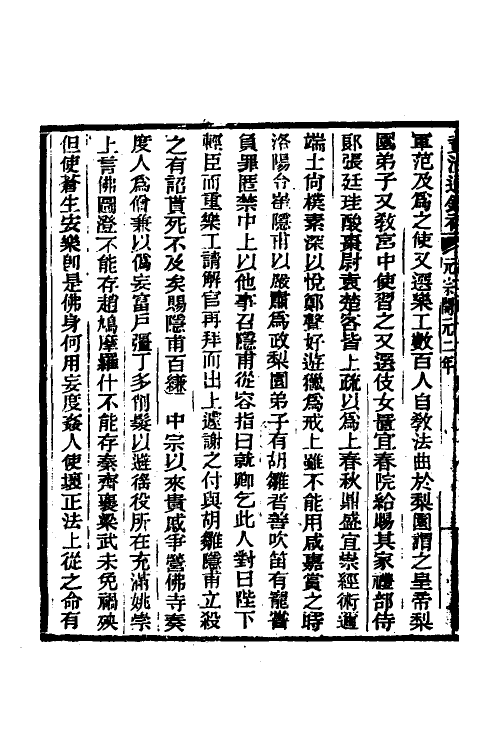 軍范及爲之使又選樂工數百人自敎法曲於梨園謂之皇帝梨
園弟子又敎宮中使習之又選伎女置宜春院給賜其家禮部侍
郞張廷珪酸棗尉袁楚客皆上疏以爲上春秋鼎盛宜崇經術邇
端士尙樸素深以悅鄭聲好遊獵爲戒上雖不能用咸嘉賞之時
洛陽令崔隱甫以嚴肅爲政梨園弟子有胡雛者善吹笛有寵嘗
負罪匿禁中上以他事召隱甫從容指曰就卿乞此人對曰陛下
輕臣而重樂工請解官再拜而出上遽謝之付與胡雛隱甫立殺
之有詔貰死不及矣賜隱甫百縑　中宗以來貴戚爭營佛寺奏
度人爲僧兼以僞妄富戶彊丁多削髮以避徭役所在充滿姚崇
上言佛圖澄不能存趙鳩摩羅什不能存秦齊襄梁武未免禍殃
但使蒼生安樂卽是佛身何用妄度姦人使壞正法上從之命有